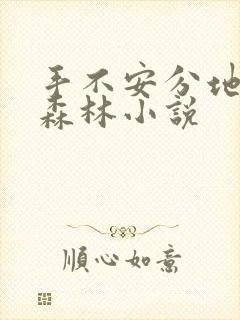 手不安分地
森林小說
順心如意